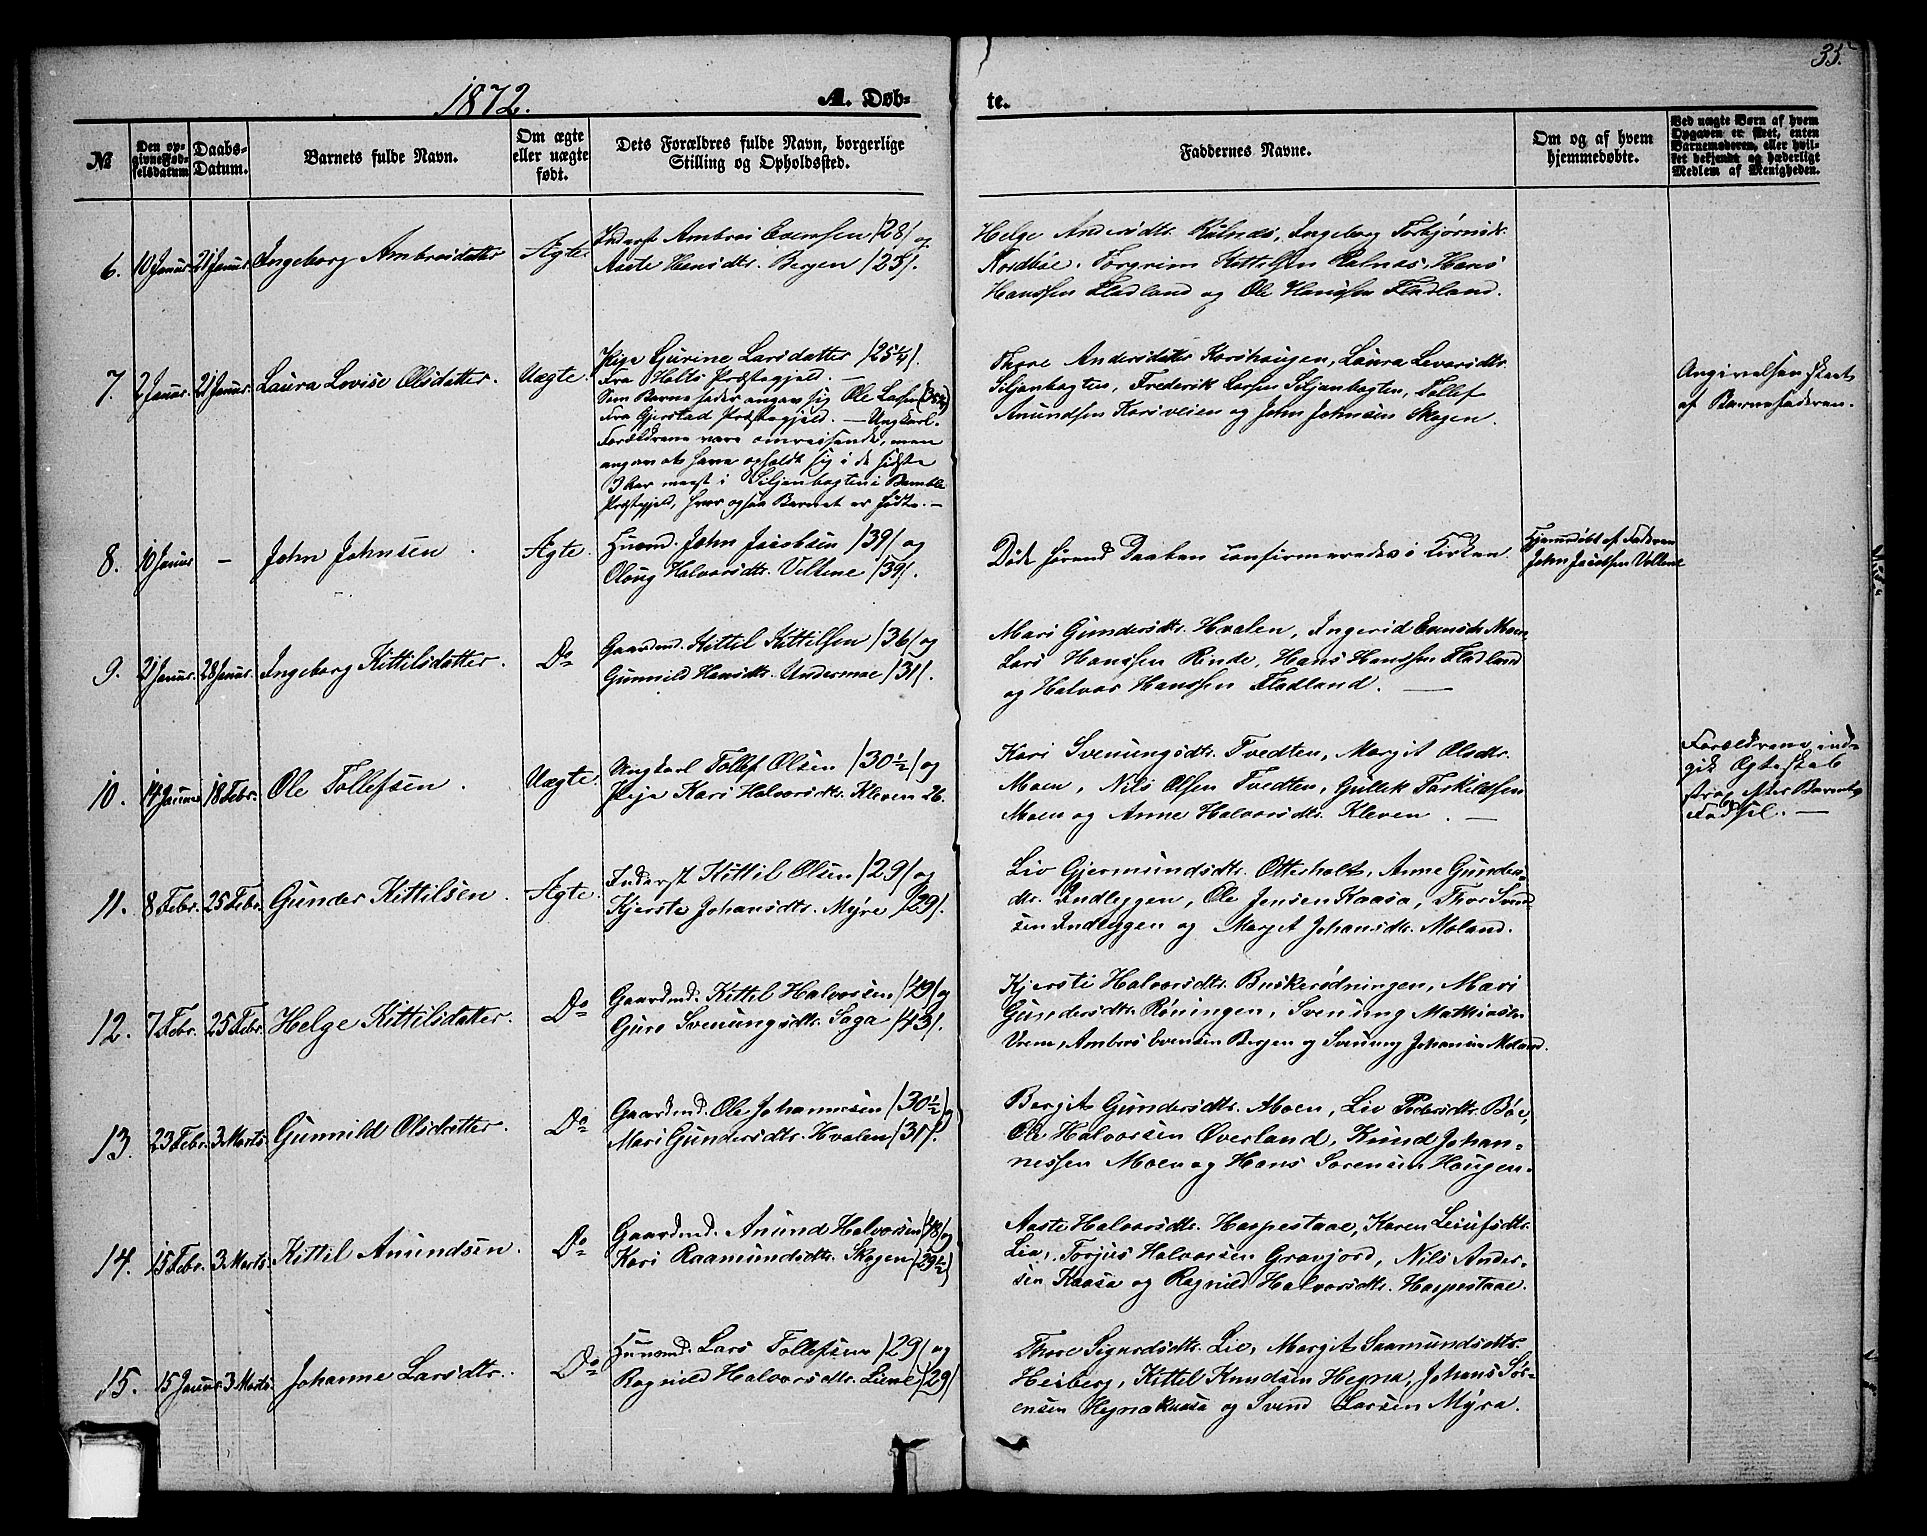 35.
1872.
A. Døb-
te.
№
Den op-
givne Fød-
selsdatum
Daabs-
Datum.
Barnets fulde Navn.
Om ægte
eller uægte
født.
Dets Forældres fulde Navn, borgerlige
Stilling og Opholdssted.
Faddernes Navne.
Om og af hvem
hjemmedøbte.
Ved uægte Børn af hvem
Opgaven er skeet, enten
Barnemoderen, eller hvil-
ket bekjendt og hæderligt
Medlem af Menigheden.
6. 10 Januar 21 Januar. Ingeborg Ambrosdatter Ægte.
Inderst Ambros Evensen /28/ og
Aaste Hansdtr. Bergen /25/.
Helge Andersdtr. Kulnæs, Ingeborg Torbjørnsdr.
Nordbøe. Torgrim Kittilsen Kulnæs, Hans
Hanssen Fladland og Ole Hanssen Fladland.
7. 2 Januar. 21 Januar. Laura Lovise Olsdatter. Uægte.
Pige Gurine Larsdatter /25 1/4/.
Fra Holts Præstegjeld. —
Som Barnefader angav sig Ole Larsen
Fra Gjerstad Præstegjeld. — Ungkarl.
Forældrene vare omreisende, men
angav at have opholdt sig i de sidste
3 Aar meest i Siljanbogten i Bamble
Præstegjeld, hvor ogsaa Barnet er født. —
Thore Andersdatter Korshaugen, Laura Levorsdtr.
Siljanbogten, Frederik Larsen Siljanbogten, Tollef
Anundsen Kasiveien og John Johnsen Skogen.
Angivelsen skeet
af Barnefaderen.
8. 10 Januar — John Johnsen. Ægte.
Huusmd. John Jacobsen /39/ og
Oloug Halvorsdtr. Vollene /39/.
Døde førend Daaben confirmeredes i Kirken.
Hjemmedøbt af Faderen
John Jacobsen Vollene
9. 2 Januar. 28 Januar. Ingeborg Kittilsdatter. Do
Gaardmd. Kittil Kittilsen /36/ og
Gunnild Hansdtr. Undermoe /31/.
Mari Gundersdtr. Hvalen, Ingerid Evensdtr. Moen
Lars Hanssen Rinde, Hans Hanssen Fladland
og Halvor Hanssen Fladland. —
10. 14 Januar 18 Febr. Ole Tollefsen. Uægte.
Ungkarl Tollef Olsen /30 1/2/ og
Pige Kari Halvorsdtr. Kleven 26.
Kari Svenungsdtr. Tvedten, Margit Olsdtr.
Moen, Nils Olsen Tvedten, Gullek Tarkildsen
Moen og Anne Halvorsdtr. Kleven. —
Forældrene ind-
gik Ægteskab
strax efter Barnets
Fødsel. —
11. 8 Febr. 25 Febr. Gunder Kittilsen Ægte.
Inderst Kittil Olsen /29/ og
Kjerste Johansdtr. Myre /29/.
Liv Gjermundsdtr. Otterholt, Anne Gunders-
dtr. Indleggen, Ole Jensen Kaasa, Thor Svend-
sen Indleggen og Margit Johansdtr. Moland.
12. 7 Febr. 25 Febr. Helge Kittilsdatter. Do
Gaardmd. Kittil Halvorsen /49/ og
Guro Svenungsdtr. Saga /43/.
Kjersti Halvorsdtr. Buskerødningen, Mari
Gundersdtr. Røningen, Svenung Mathiassen
Vreim, Ambros Evensen Bergen og Svenung Johansen Moland.
13. 23 Febr. 3 Marts. Gunnild Olsdatter. Do
Gaardmd. Ole Johannesen /30 1/2/ og
Mari Gundersdtr. Hvalen /31/.
Bergit Gundersdtr. Moen, Liv Pedersdtr. Bøe,
Ole Halvorsen Øverland, Knud Johan-
nessen Moen og Hans Sørensen Haugen.
14. 15 Febr. 3 Marts. Kittil Anundsen. Do
Gaardmd. Anund Halvorsen /48/ og
Kari Raamundsdtr. Skogen /29 1/2/
Aaste Halvorsdtr. Haapestaae, Karen Leiufsdtr.
Lia, Torjus Halvorsen Gravjord, Nils Ander-
sen Kaasa og Ragnild Halvorsdtr. Haapestaae.
15. 15 Januar 3 Marts Johanne Larsdtr. Do
Huusmd. Lars Tollefsen /29/ og
Ragnild Halvorsdtr. Liene /29/
Thore Sigurdsdtr. Lie, Margit Saamundsdtr.
Heiberg, Kittil Knudsen Hegna, Johans Sør-
ensen Hegnakaasa og Svend Larsen Myra.